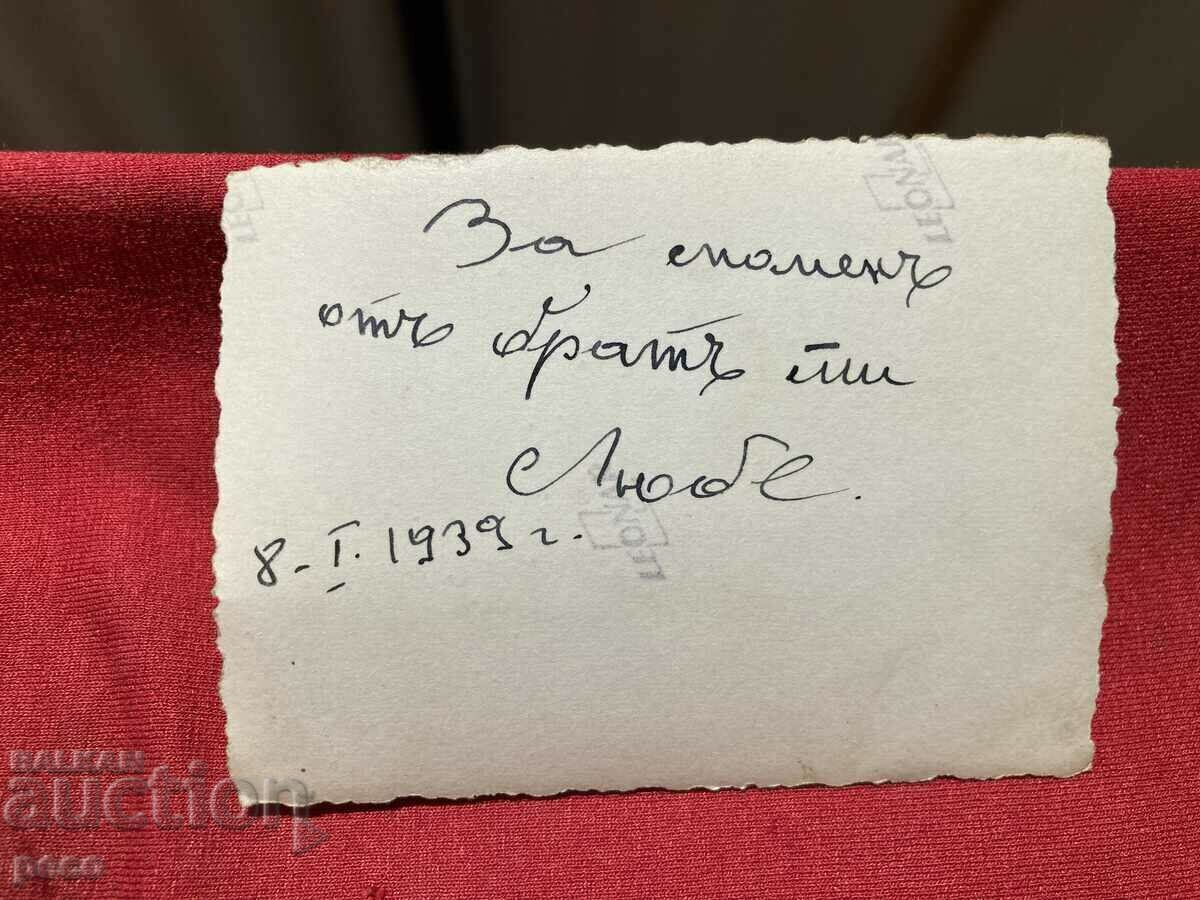 За споменъ
отъ братъ ти
Любе.
8-I.1939 г.
LEONAR
BALKAN
auction
peco